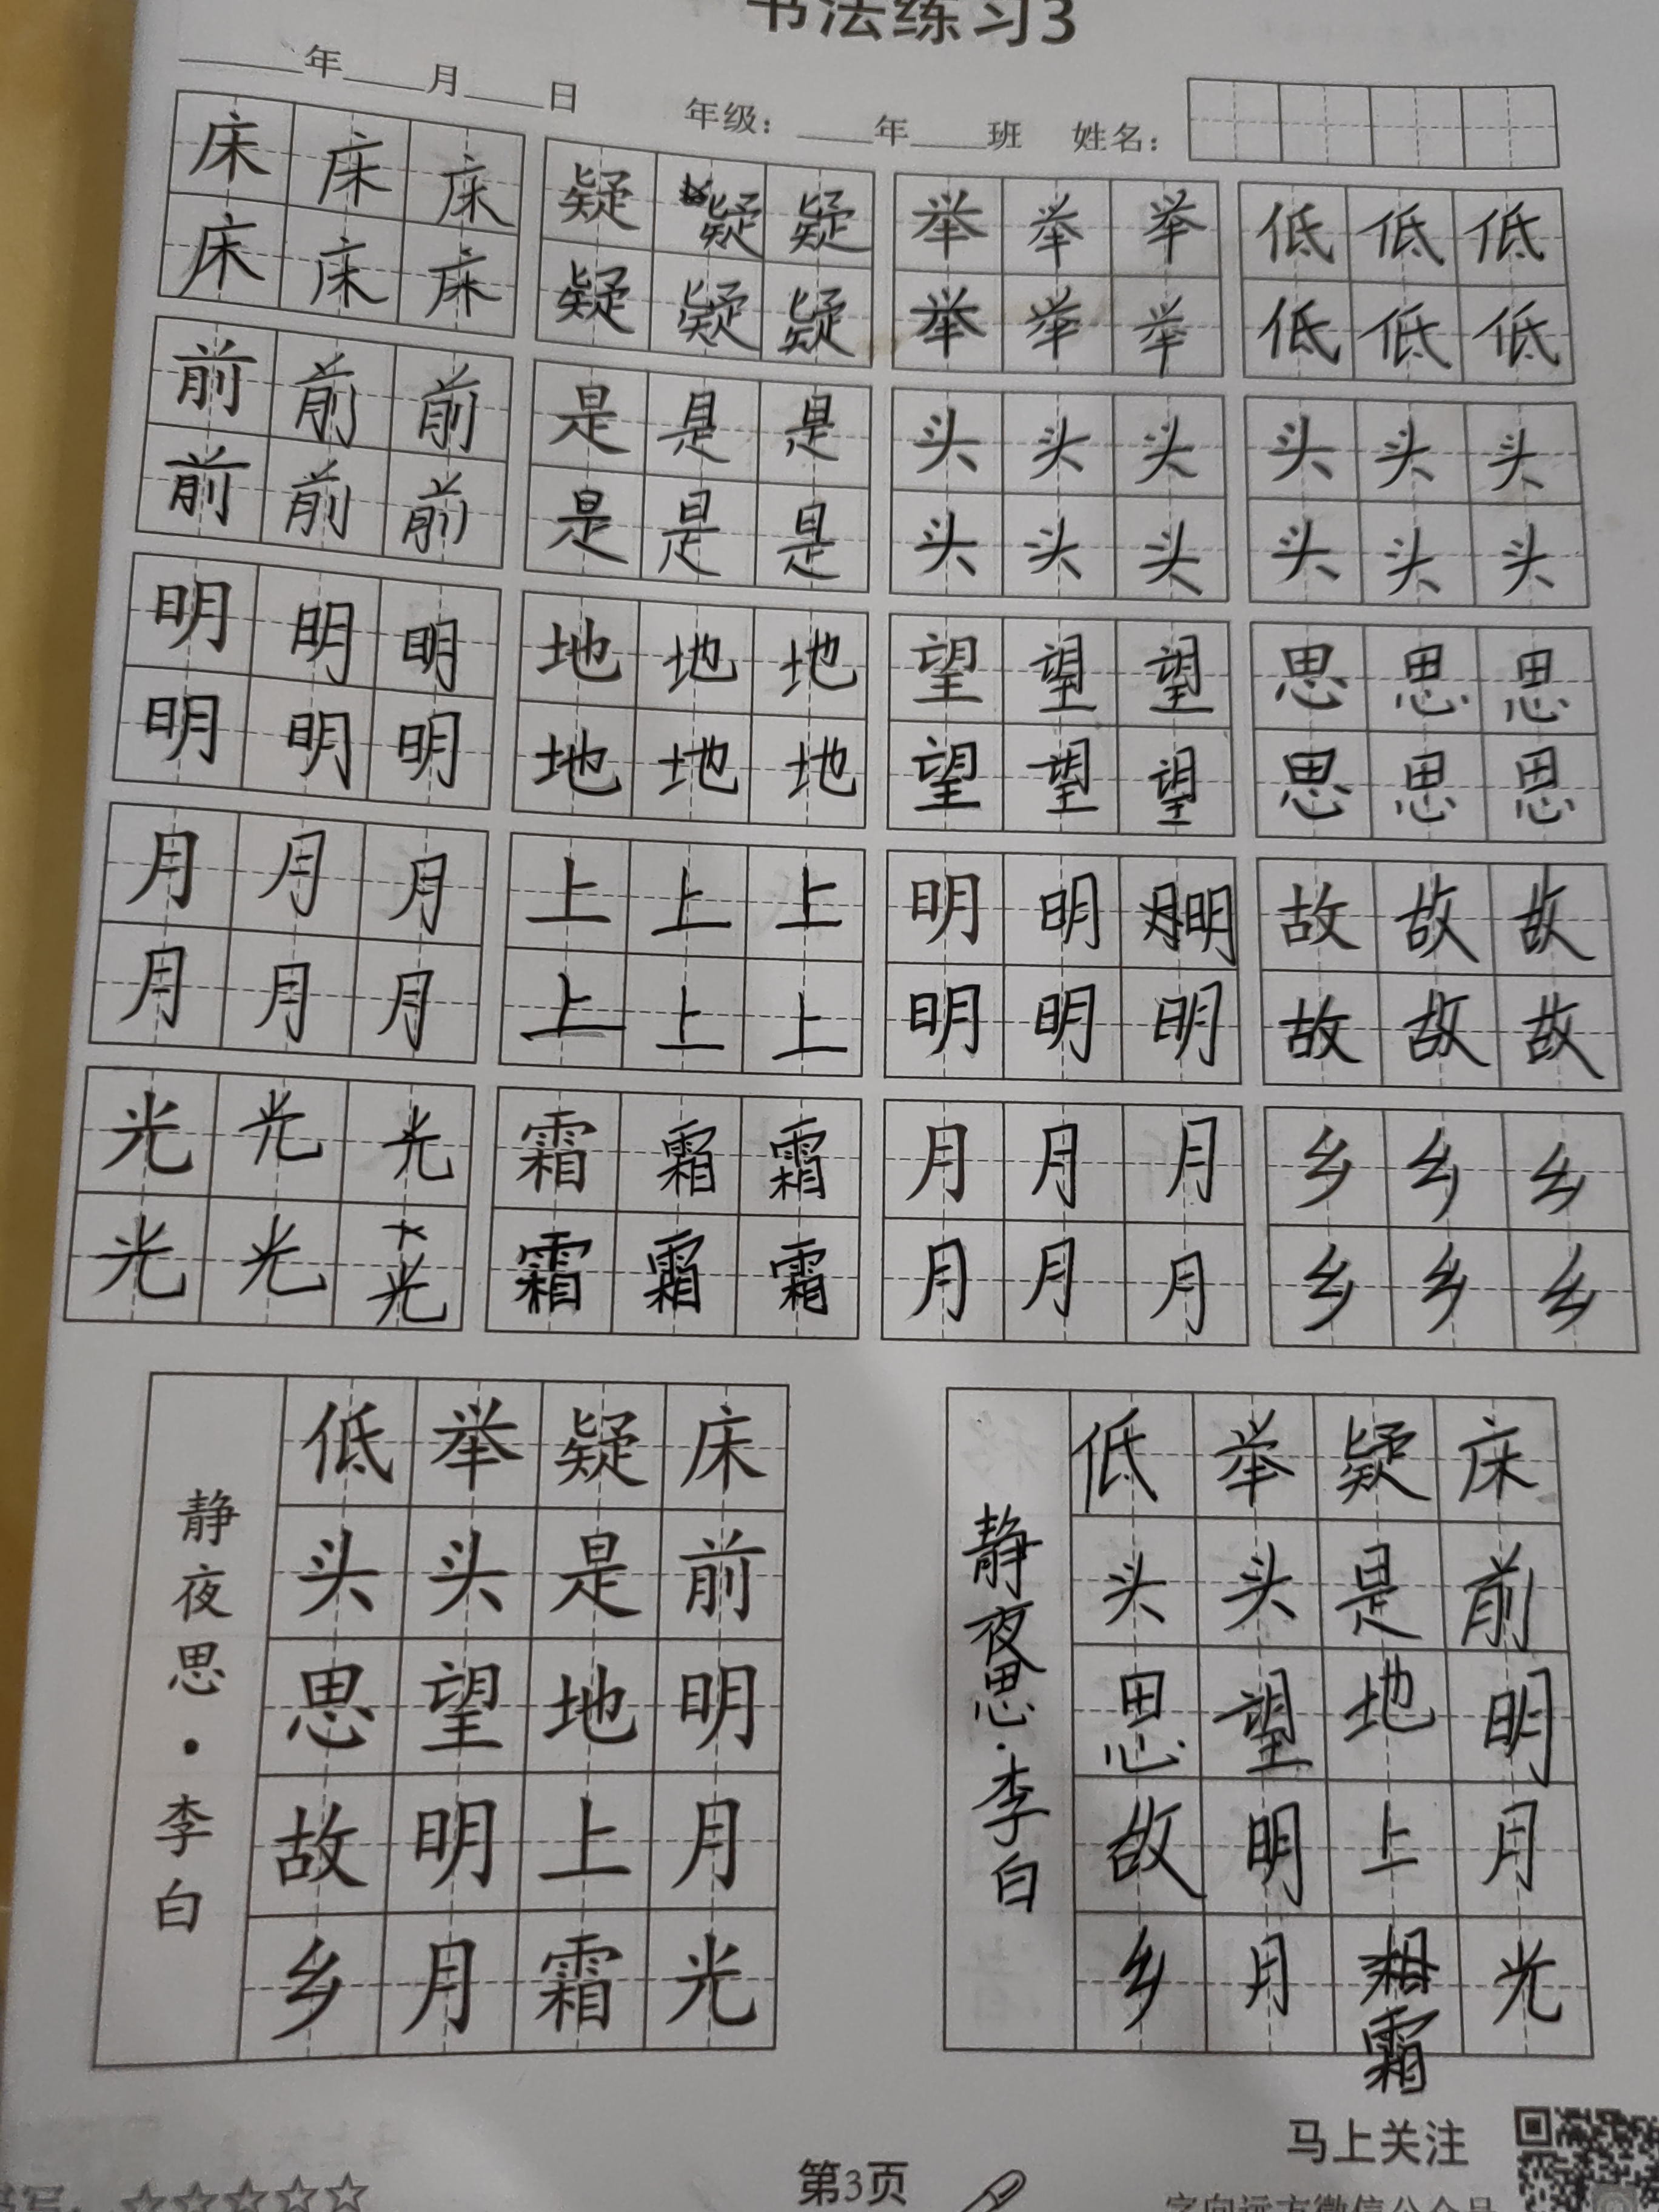 书法练习3
年 月 日 年级： 年 班 姓名：
床床床 疑疑疑 举举举 低低低
床床床 疑疑疑 举举举 低低低
前前前 是是是 头头头 头头头
前前前 是是是 头头头 头头头
明明明 地地地 望望望 思思思
明明明 地地地 望望望 思思思
月月月 上上上 明明明 故故故
月月月 上上上 明明明 故故故
光光光 霜霜霜 月月月 乡乡乡
光光光 霜霜霜 月月月 乡乡乡
床前明月光
疑是地上霜
举头望明月
低头思故乡
静夜思·李白
床前明月光
疑是地上霜
举头望明月
低头思故乡
静夜思·李白
马上关注
第3页
字向远方微信公众号